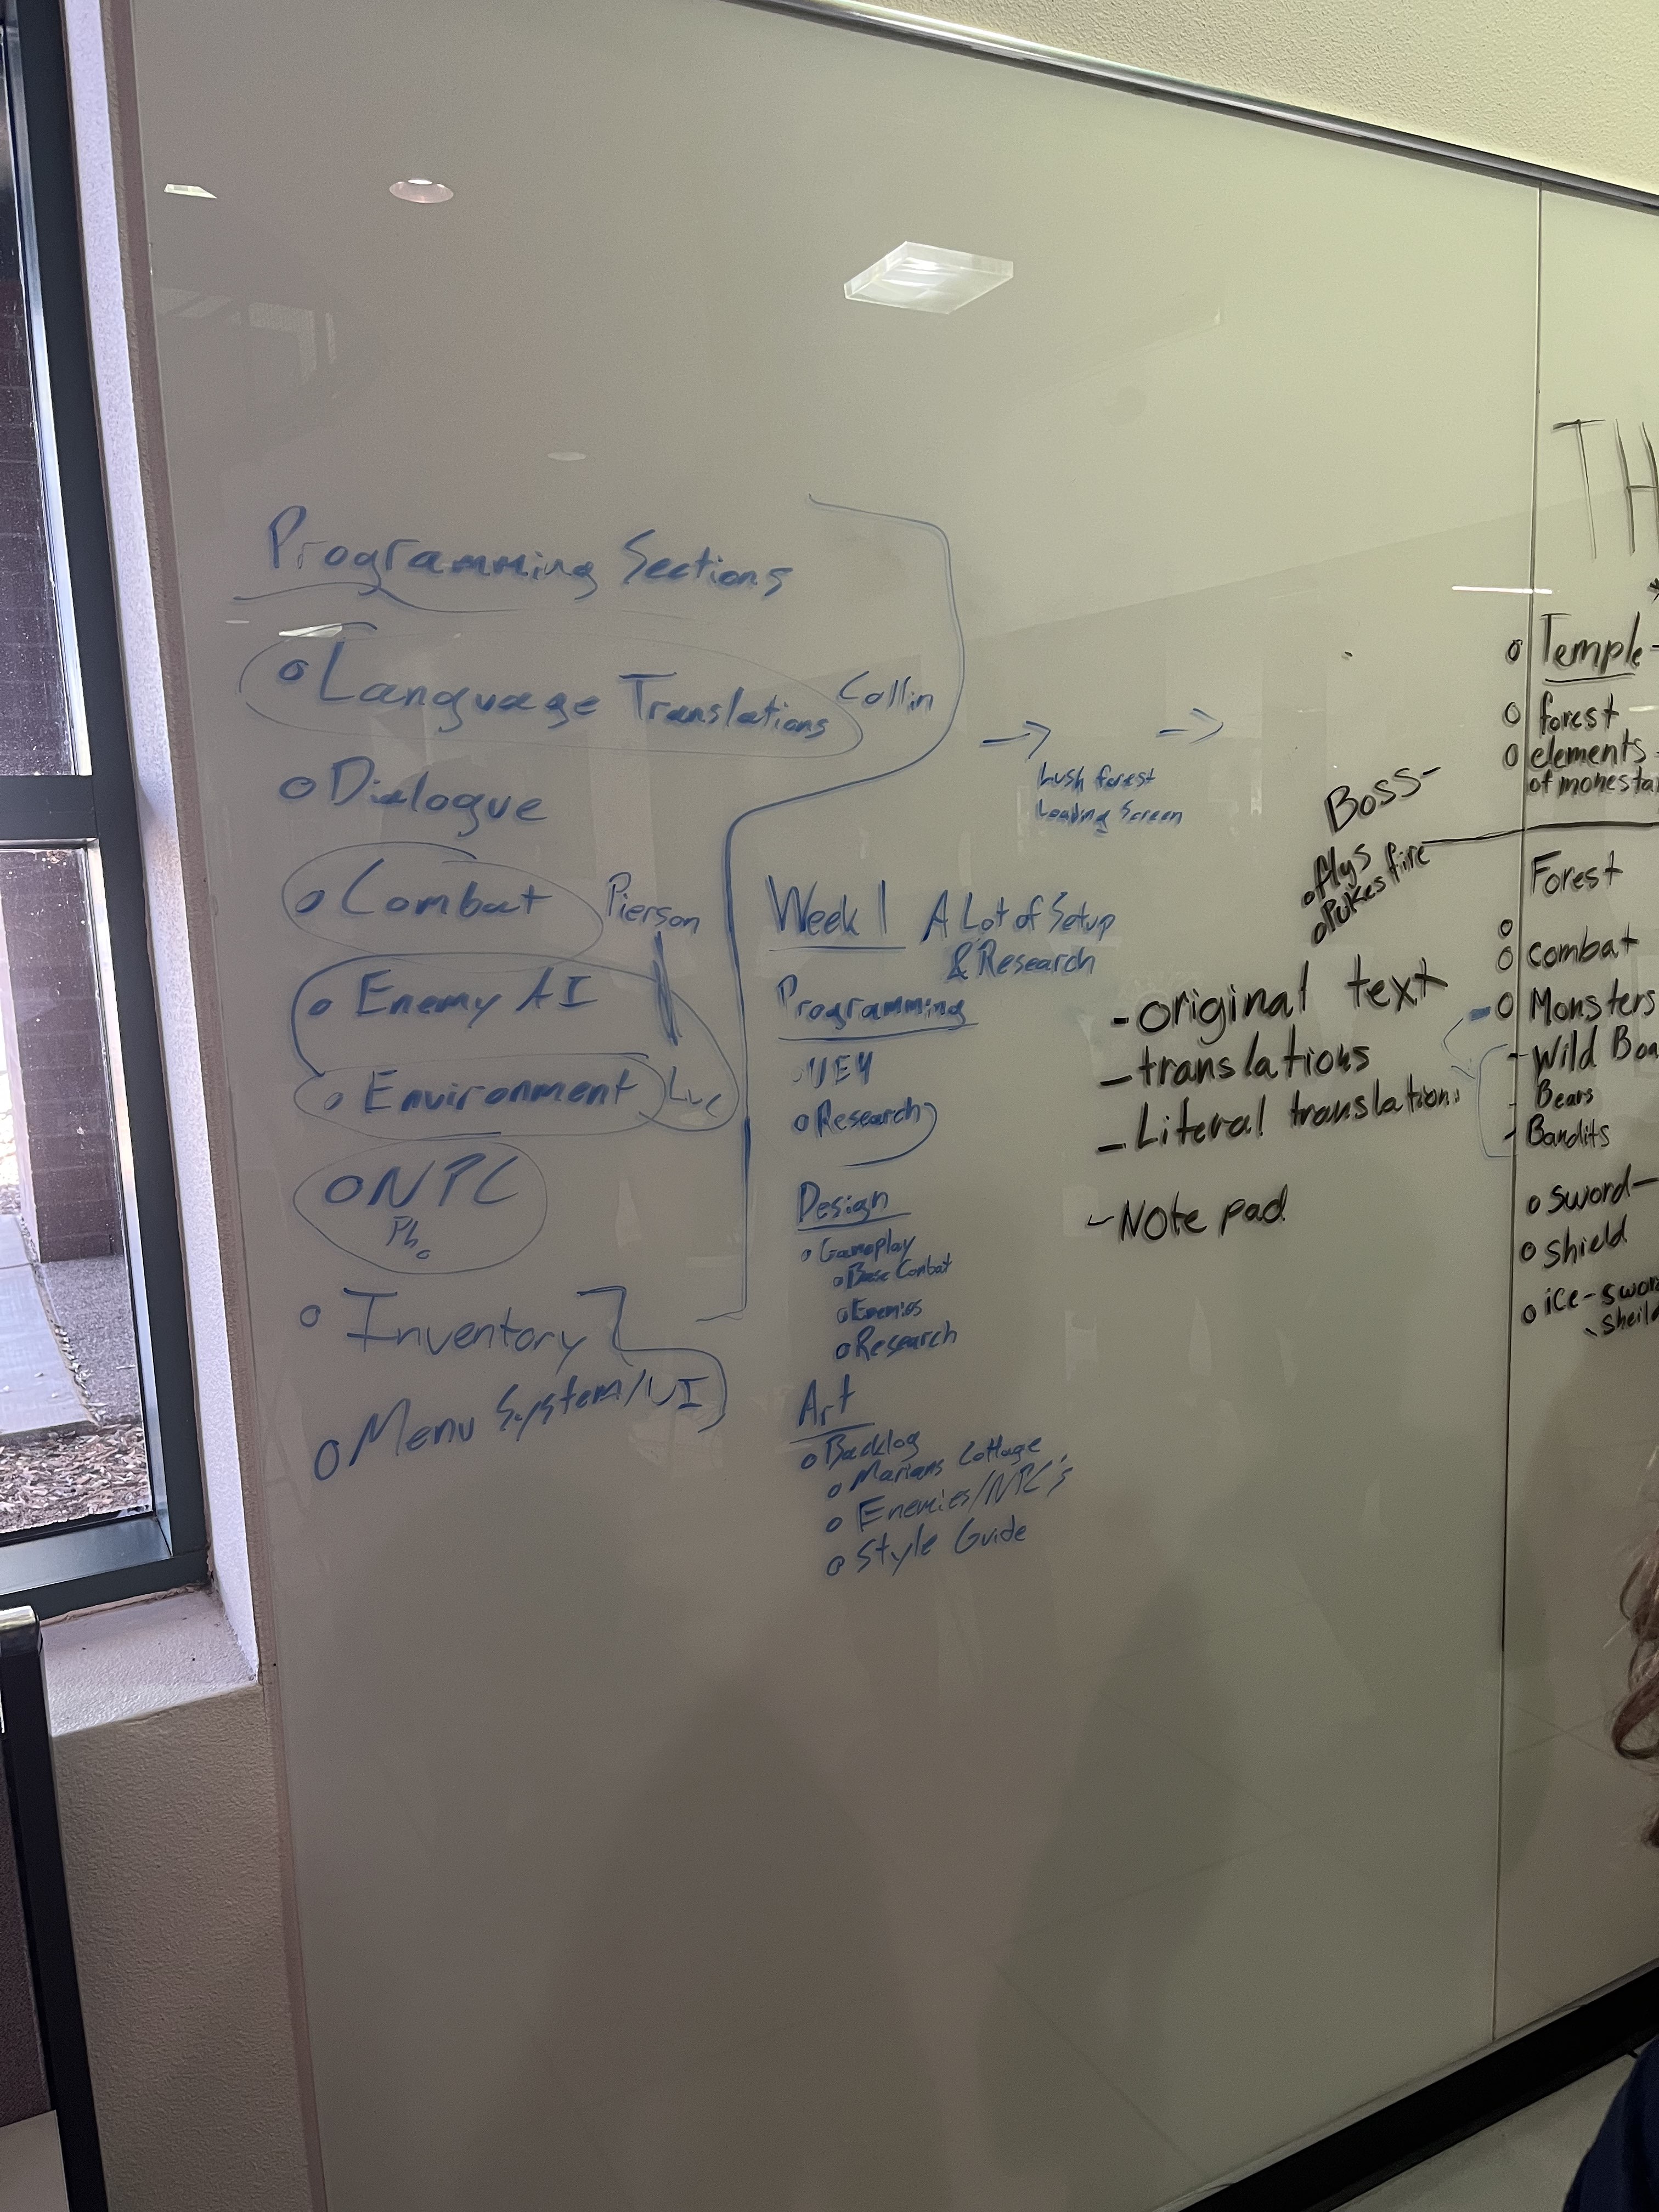 Programming Sections
o Language Translations Collin
o Dialogue
o Combat Pierson
o Enemy AI
o Environment Luc
o NPC
o Inventory
o Menu System/UI
Lush forest
Loading Screen
Week 1 A Lot of Setup
& Research
Programming
o Research
Design
o Gameplay
o Base Combat
o Enemies
o Research
Art
o Backlog
o Marians Cottage
o Enemies/NPC's
o Style Guide
Boss-
o flys
o Pukes fire
- original text
- translations
- Literal translation
- Note pad
TH
o Temple-
o forest
o elements
of monesta
Forest
o
o combat
- o Monsters
- Wild Boa
- Bears
- Bandits
o sword-
o shield
o ice-swor
sheild